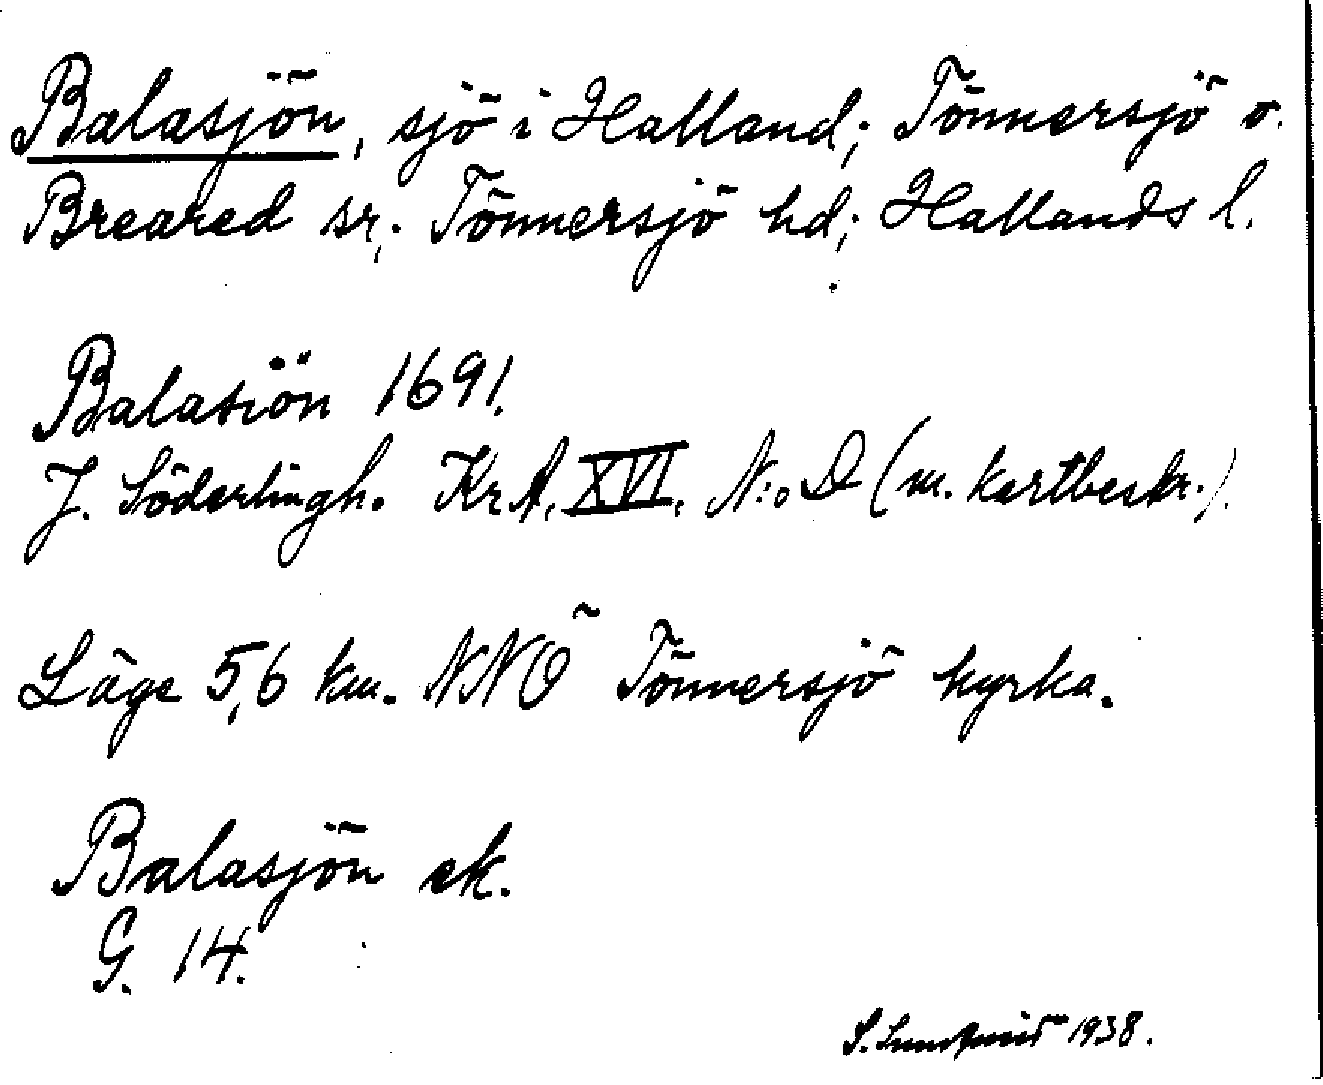 Balasjön, sjö i Halland; Tönnersjö o.
Breared sr; Tönnersjö hd; Hallands l.
Balasiön 1691.
J. Söderlingh. Kr.A. XVI. N:o D (m. kartbeskr.).
Läge 5,6 km. NNÖ Tönnersjö kyrka.
Balasjön ek.
G. 14.
S. 1938.